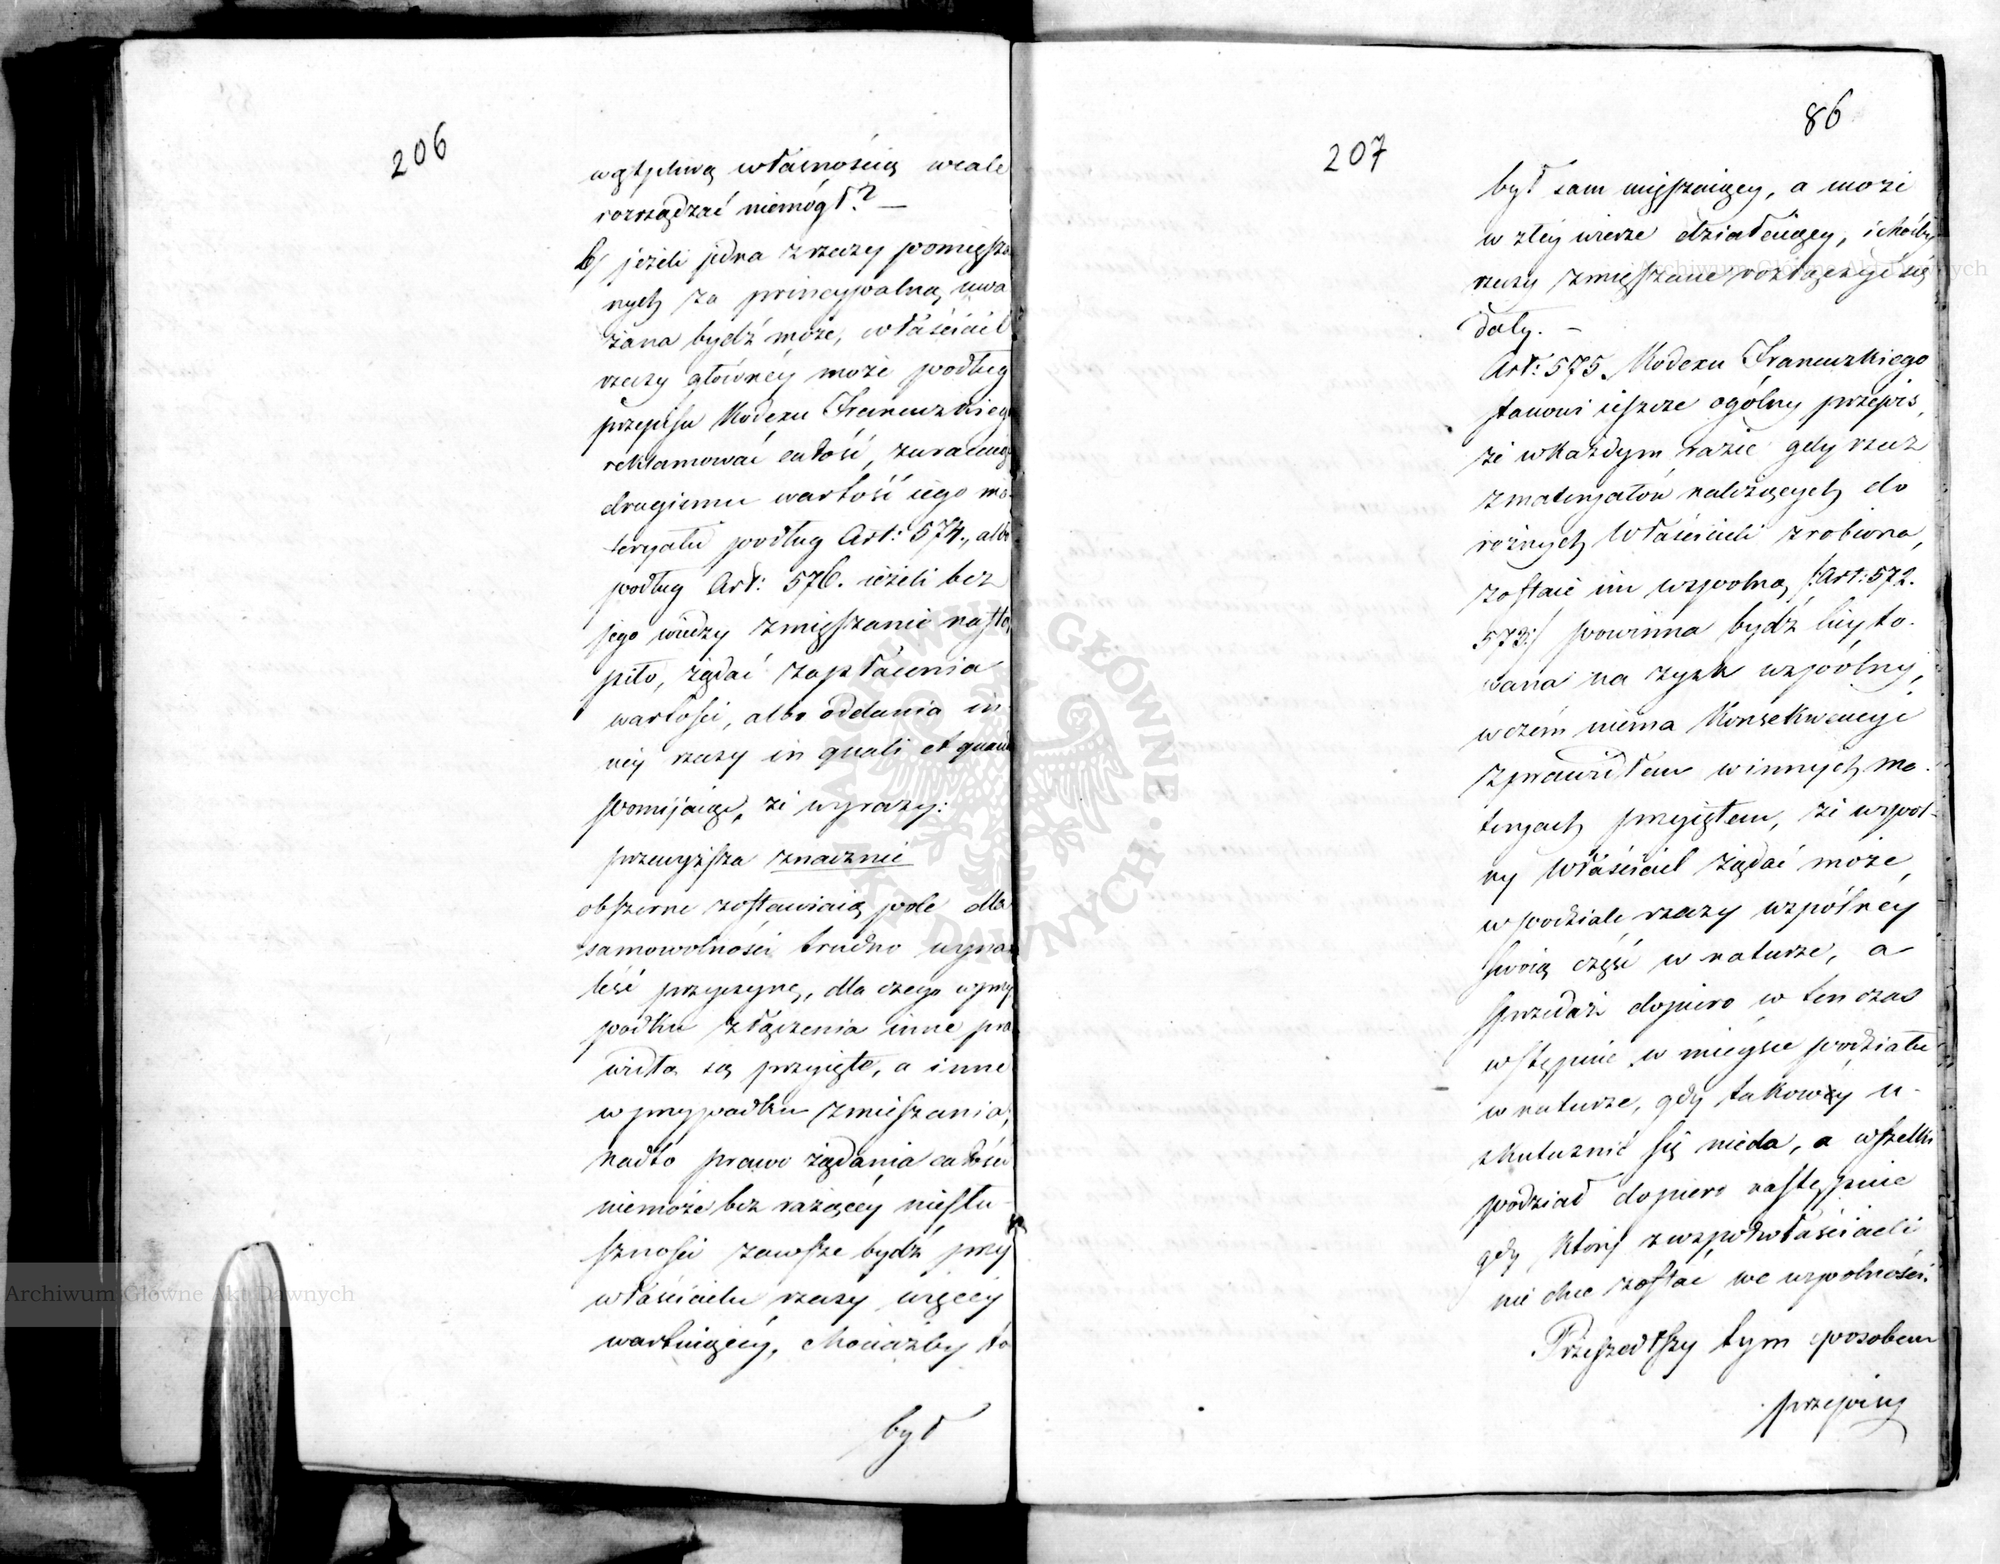 206
wątpliwą własnością wcale
rozrządzać niemógł? —
b/ jeżeli jedna z rzeczy pomięsza-
nych za pryncypalną uwa
żana bydź może, właściciel
rzeczy główney może podług
przepisu Kodexu Francuzkiego
reklamować całość, zwracając
drugiemu wartość iego ma-
teryału podług Art: 574., albo
podług Art: 576. ieżeli bez
jego wiedzy zmięszanie nastą
piło, żądać zapłacenia
wartości, albo oddania in-
ney rzeczy in quali et quanto
pomijaiąc, że wyrazy:
przewyższa znacznie
obszerne zostawiaią pole dla
samowolności trudno wyna
leść przyczynę, dla czego w przy
padku złączenia inne pra
widła są przyięte, a inne
w przypadku zmieszania,
nadto prawo żądania całości
niemoże bez rażącéy niesłu-
szności zawsze bydź przy
właścicielu rzeczy więcéy
wartuiącéy, chociażby to
był
86
207
był sam mięszaiący, a może
w złéy wierze działaiący, i choćby
rzeczy zmięszane rozłączyć się
dały. —
Art: 575. Kodexu Francuzkiego
stanowi ieszcze ogólny przepis,
że w każdym razie gdy rzecz
z materyałów należących do
różnych Właścicieli zrobiona,
zostaie im wspólną /:Art: 572.
573:/ powinna bydź licyto-
wana na zysk wspólny,
w czém niema Konsekwencyi
z prawidłem w innych ma-
teryach przyiętem, że wspól-
ny Właściciel żądać może,
w podziale rzeczy wspólnéy
swoią część w naturze, a
sprzedaż dopiero w ten czas
wstępuie w mieysce podziału
w naturze, gdy takowy u-
skutecznić się nieda, a wszelki
podział dopiero następuie
gdy któryś z współwłaścicieli
nie chce zostać we wspólności.
Przeszedłszy tym sposobem
przepisy
Archiwum Główne Akt Dawnych
Archiwum Główne Akt Dawnych
ARCHIWUM GŁÓWNE AKT DAWNYCH